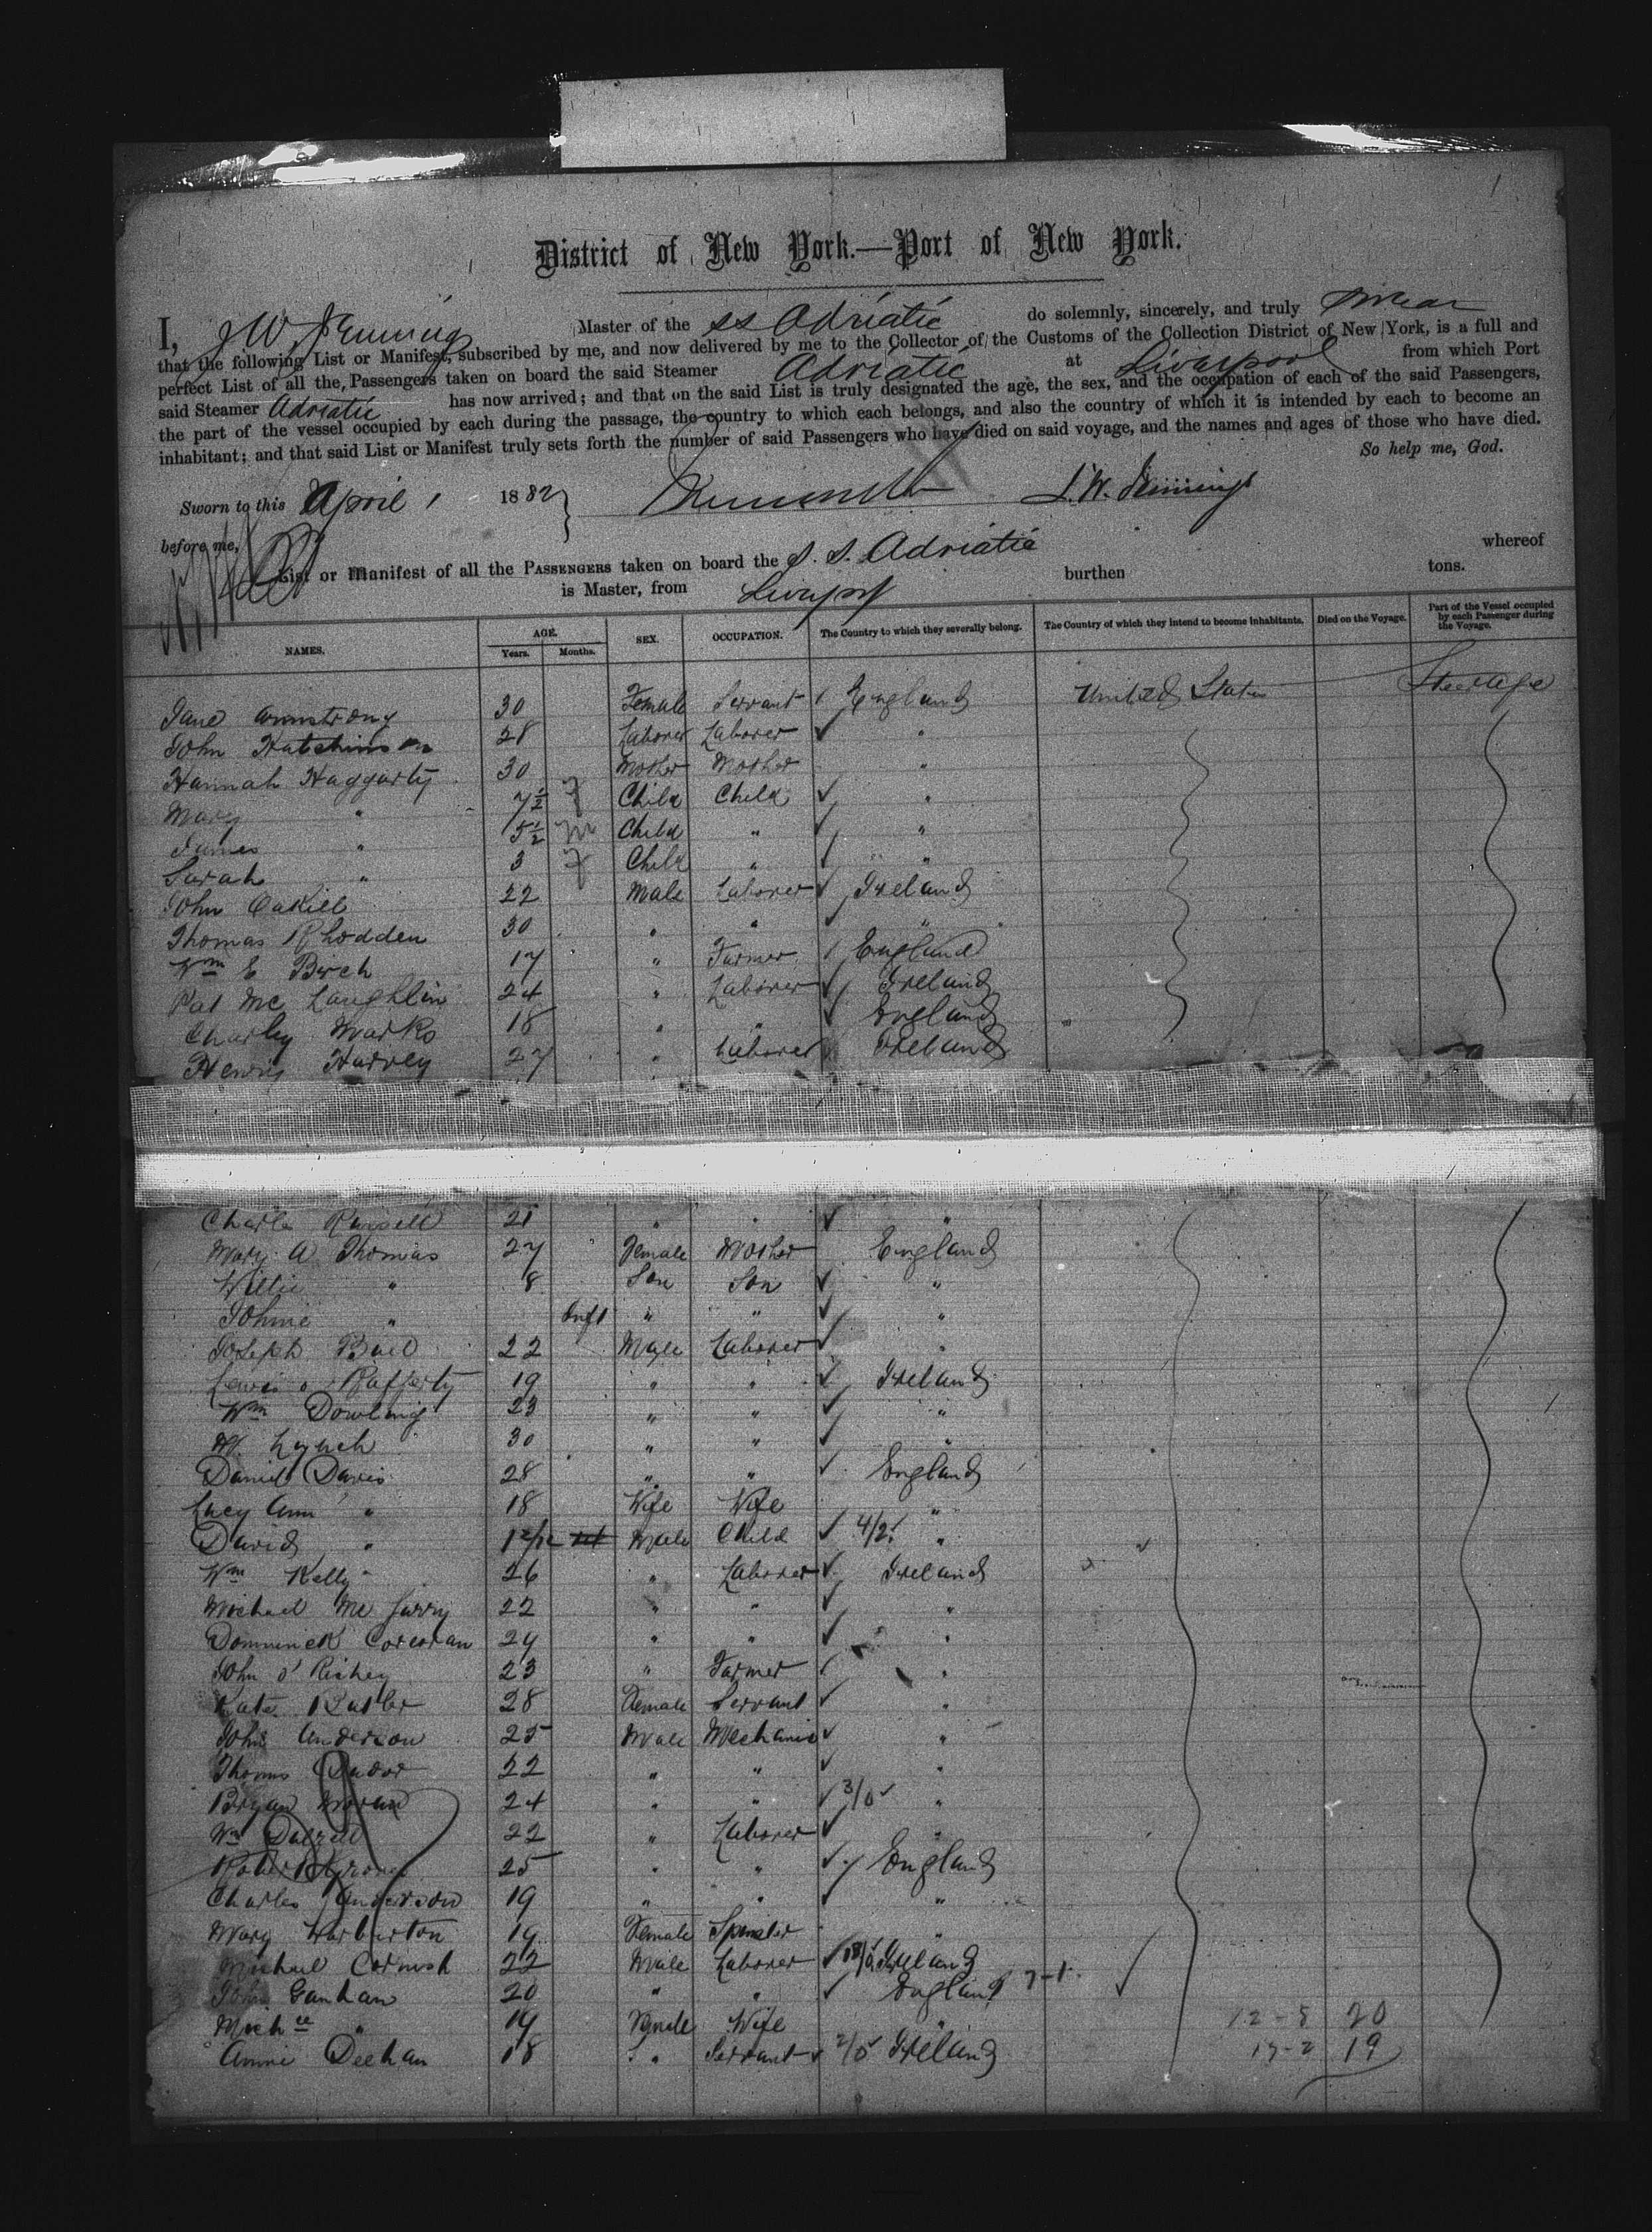 District of New York.—Port of New York.
I, J W Jennings Master of the SS Adriatic do solemnly, sincerely, and truly swear
that the following List or Manifest, subscribed by me, and now delivered by me to the Collector of the Customs of the Collection District of New York, is a full and
perfect List of all the Passengers taken on board the said Steamer Adriatic at Liverpool from which Port
said Steamer Adriatic has now arrived; and that on the said List is truly designated the age, the sex, and the occupation of each of the said Passengers,
the part of the vessel occupied by each during the passage, the country to which each belongs, and also the country of which it is intended by each to become an
inhabitant; and that said List or Manifest truly sets forth the number of said Passengers who have died on said voyage, and the names and ages of those who have died.
So help me, God.
Sworn to this April 1 1882 J. W. Jennings
before me,
List or Manifest of all the PASSENGERS taken on board the S. S. Adriatic whereof
is Master, from Liverpool burthen tons.
NAMES. AGE. Years. Months. SEX. OCCUPATION. The Country to which they severally belong. The Country of which they intend to become Inhabitants. Died on the Voyage. Part of the Vessel occupied by each Passenger during the Voyage.
Jane Armstrong 30 Female Servant England United States Steerage
John Hutchinson 28 Laborer Laborer "
Hannah Haggarty 30 Mother Mother "
Mary " 7½ f Child Child "
James " 5½ m Child " "
Sarah " 3 f Child " "
John Cahill 22 Male Laborer Ireland
Thomas Rhodden 30 " " "
Wm E Birch 17 " Farmer England
Pat Mc Laughlin 24 " Laborer Ireland
Charley Marks 18 " " England
Henry Harvey 27 " Laborer Ireland
Charles Russell 21 " " "
Mary A Thomas 27 Female Mother England
Willie " 8 Son Son "
Johnie " Inft " " "
Joseph 22 Male Laborer "
Lewis Rafferty 19 " " Ireland
Wm Dowling 23 " " "
Lynch 30 " " "
Daniel Davis 28 " " England
Lucy Ann " 18 Wife Wife "
David " 1 2/12 Male Child 4/2 "
Wm Kelly 26 " Laborer Ireland
Michael Mc Garry 22 " " "
Domminick Corcoran 24 " " "
John O' Richey 23 " Farmer "
Kate Butler 28 Female Servant "
John Anderson 25 Male Mechanic "
Thomas 22 " " "
Bryan Moran 24 " " 3/0 "
Wm Dalzell 22 " Laborer "
Robert 25 " " England
Charles Anderson 19 " " "
Mary Warburton 19 Female Spinster "
Michael Cornish 22 Male Laborer Ireland
John Ganhan 20 " " England 7-1
" 19 Female Wife " 12-8 20
Annie Deehan 18 " Servant 2/0 Ireland 17-2 19